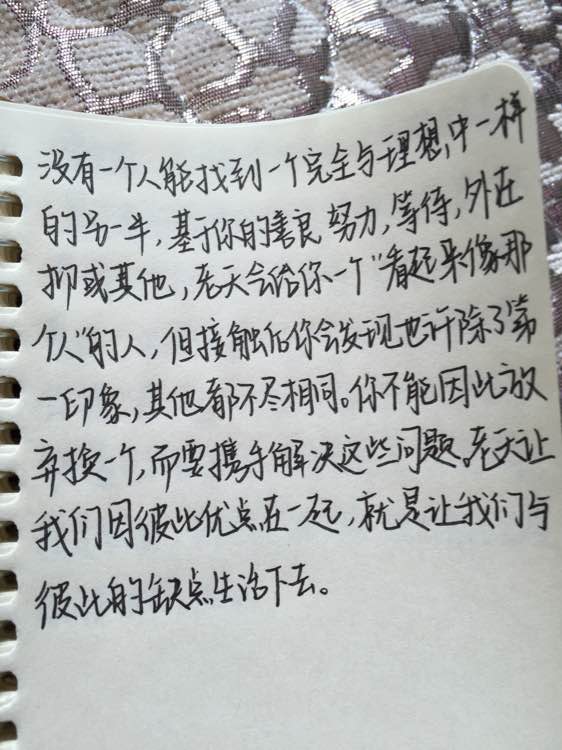 没有一个人能找到一个完全与理想中一样
的另一半，基于你的善良努力，等待，外在
抑或其他，老天会给你一个“看起来像那
个人”的人，但接触后你会发现也许除了第
一印象，其他都不尽相同。你不能因此放
弃换一个，而要携手解决这些问题。老天让
我们因彼此优点在一起，就是让我们与
彼此的缺点生活下去。